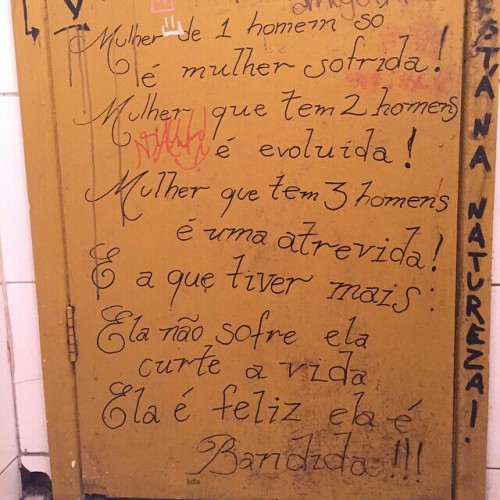 Mulher de 1 homem so
é mulher sofrida!
Mulher que tem 2 homens
é evoluida!
Mulher que tem 3 homens
é uma atrevida!
E a que tiver mais:
Ela não sofre ela
curte a vida
Ela é feliz ela é
Bandida!!!
ESTA NA NATUREZA!.